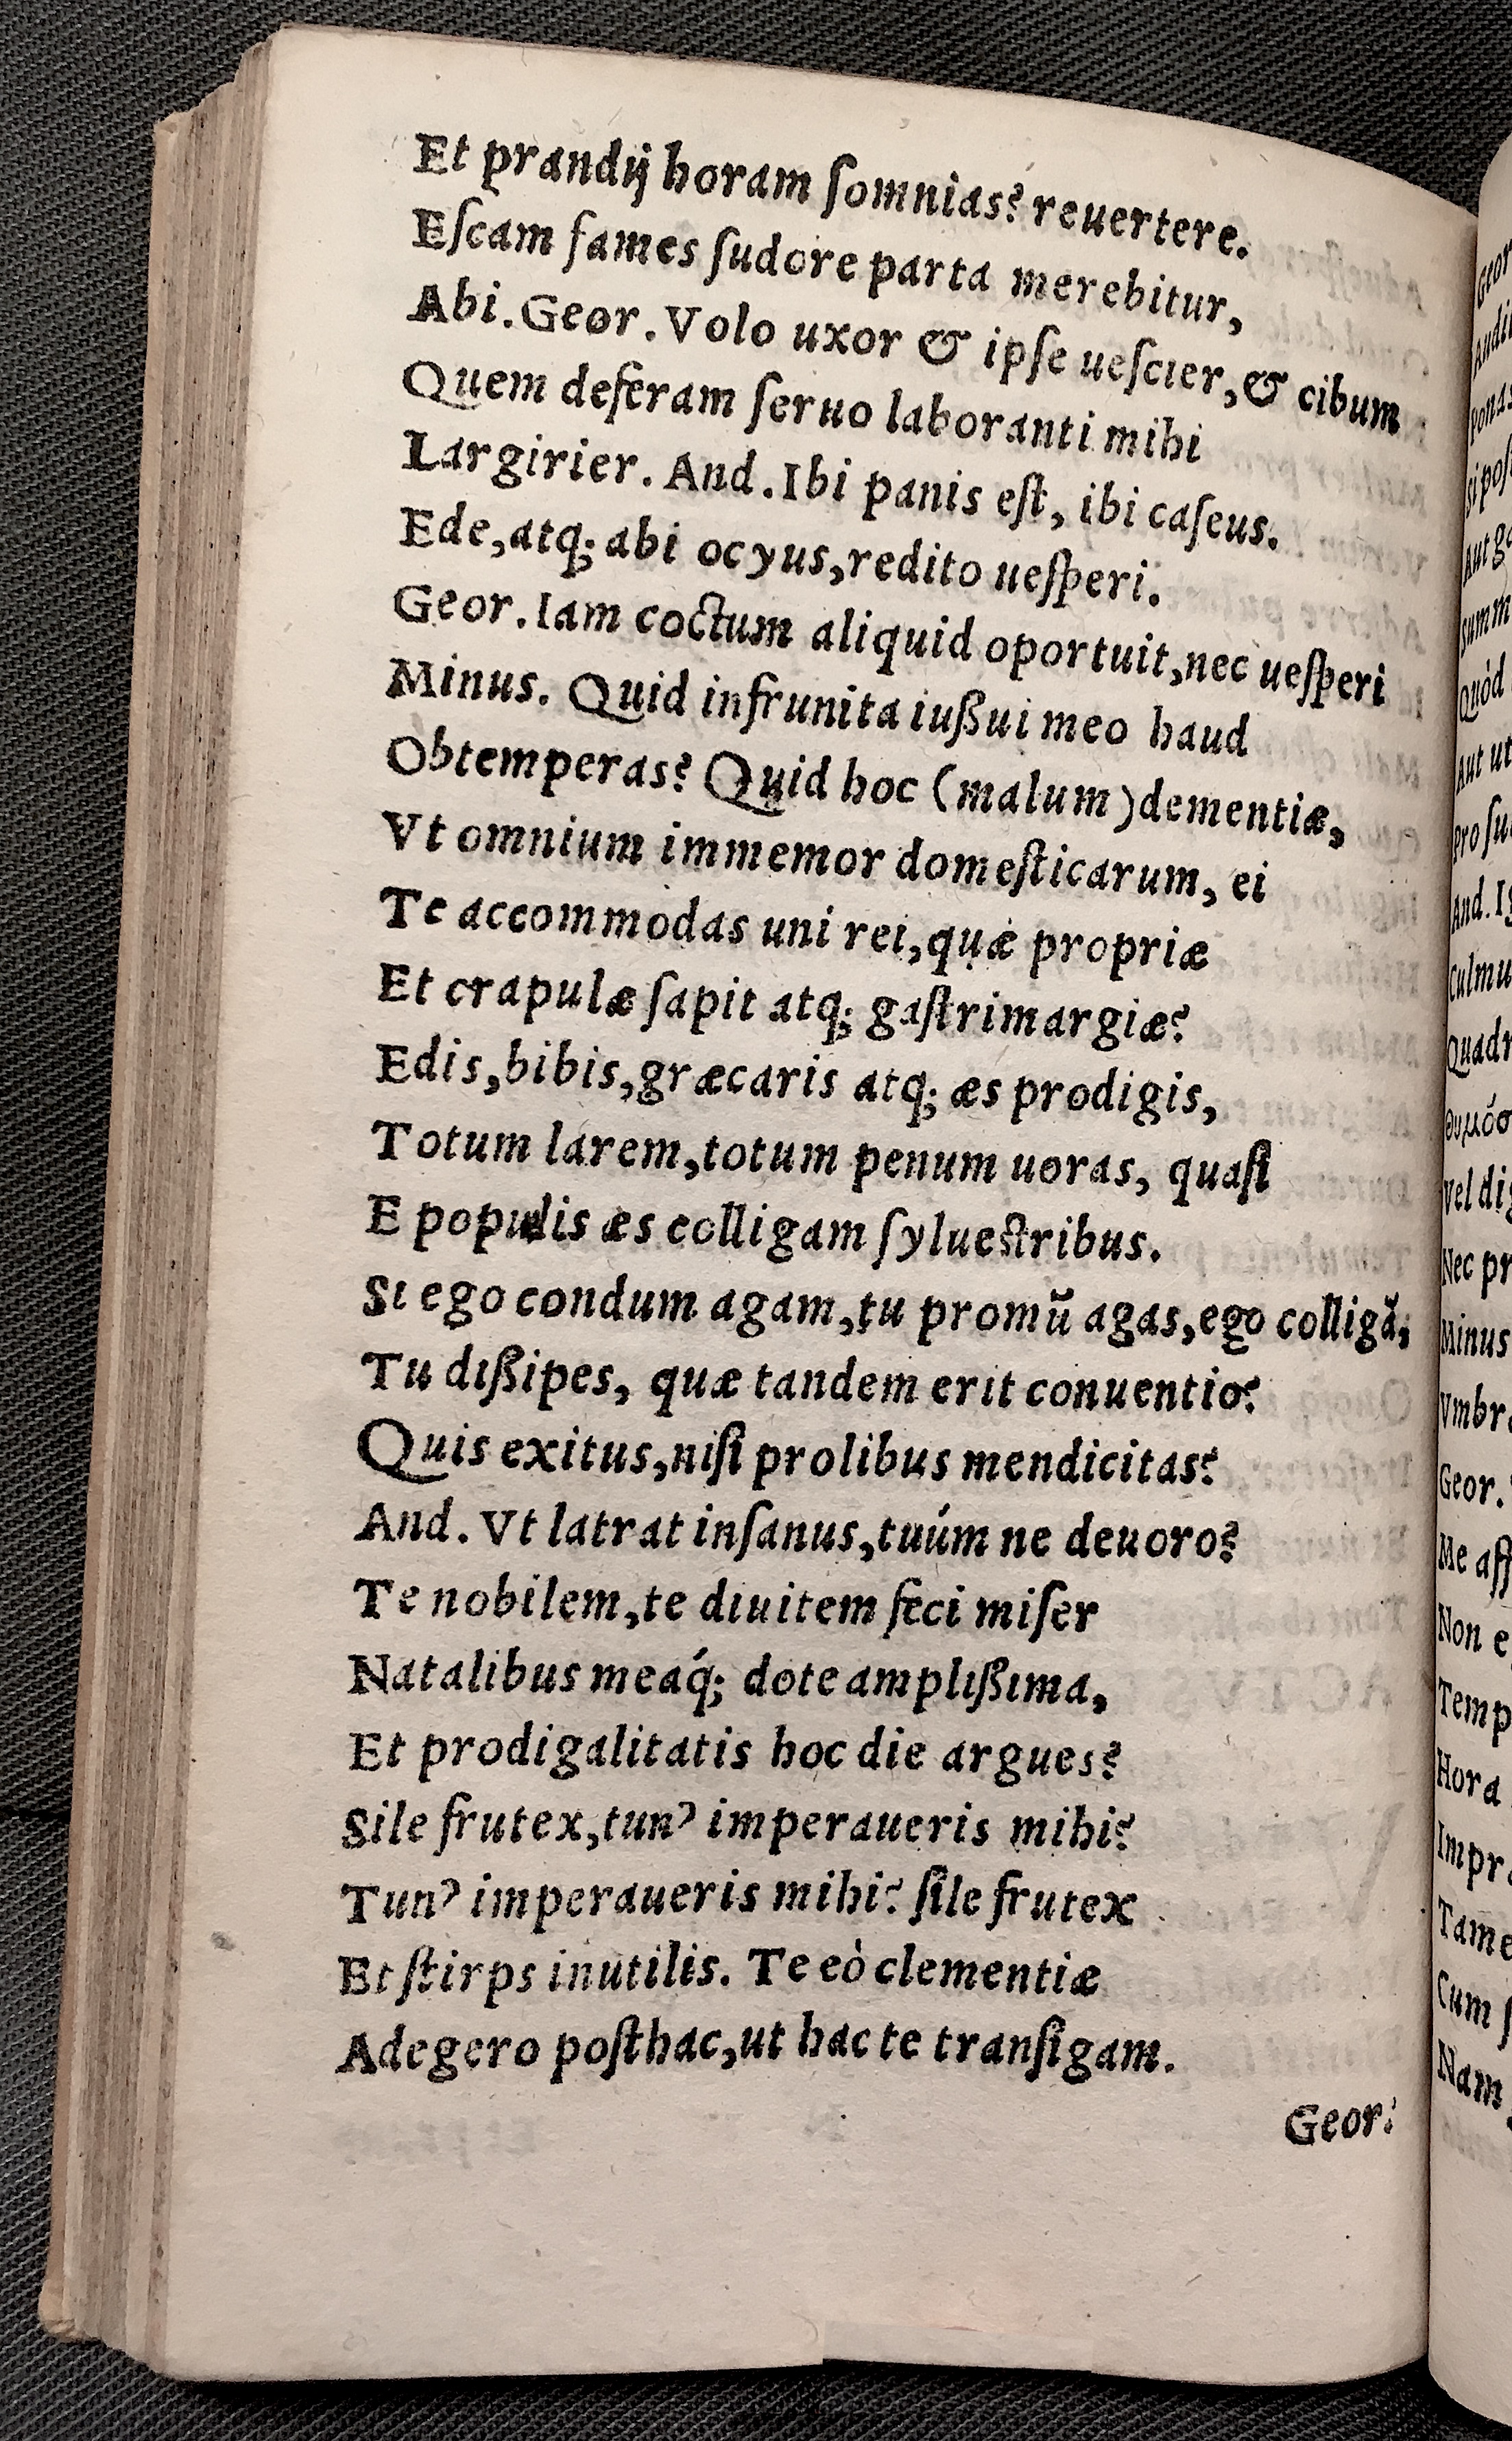 Et prandij horam ſomnias? reuertere.
Eſcam fames ſudore parta merebitur,
Abi. Geor. Volo uxor & ipſe ueſcier, & cibum
Quem deferam ſeruo laboranti mihi
Largirier. And. Ibi panis eſt, ibi caſeus.
Ede, atq; abi ocyus, redito ueſperi.
Geor. Iam coctum aliquid oportuit, nec ueſperi
Minus. Quid infrunita iußui meo haud
Obtemperas? Quid hoc (malum) dementiæ,
Vt omnium immemor domeſticarum, ei
Te accommodas uni rei, quæ propriæ
Et crapulæ ſapit atq; gaſtrimargiæ?
Edis, bibis, græcaris atq; æs prodigis,
Totum larem, totum penum uoras, quaſi
E populis æs colligam ſylueſtribus.
Si ego condum agam, tu promũ agas, ego colligã,
Tu dißipes, quæ tandem erit conuentio?
Quis exitus, niſi prolibus mendicitas?
And. Vt latrat inſanus, tuúm ne deuoro?
Te nobilem, te diuitem feci miſer
Natalibus meaq́; dote amplißima,
Et prodigalitatis hoc die argues?
Sile frutex, tun' imperaueris mihi?
Tun' imperaueris mihi? ſile frutex
Et ſtirps inutilis. Te eò clementiæ
Adegero poſthac, ut hac te tranſigam.
Geor.
Geor
Audi
ponas
Si poſ
Aut g
Summ
Quòd
Aut ut
Pro ſu
And. Ig
Culmu
Quadr
Vel dig
Nec pr
Minus
Vmbr
Geor.
Me aff
Non e
Temp
Hora
Impr
Tame
Cum ſ
Nam